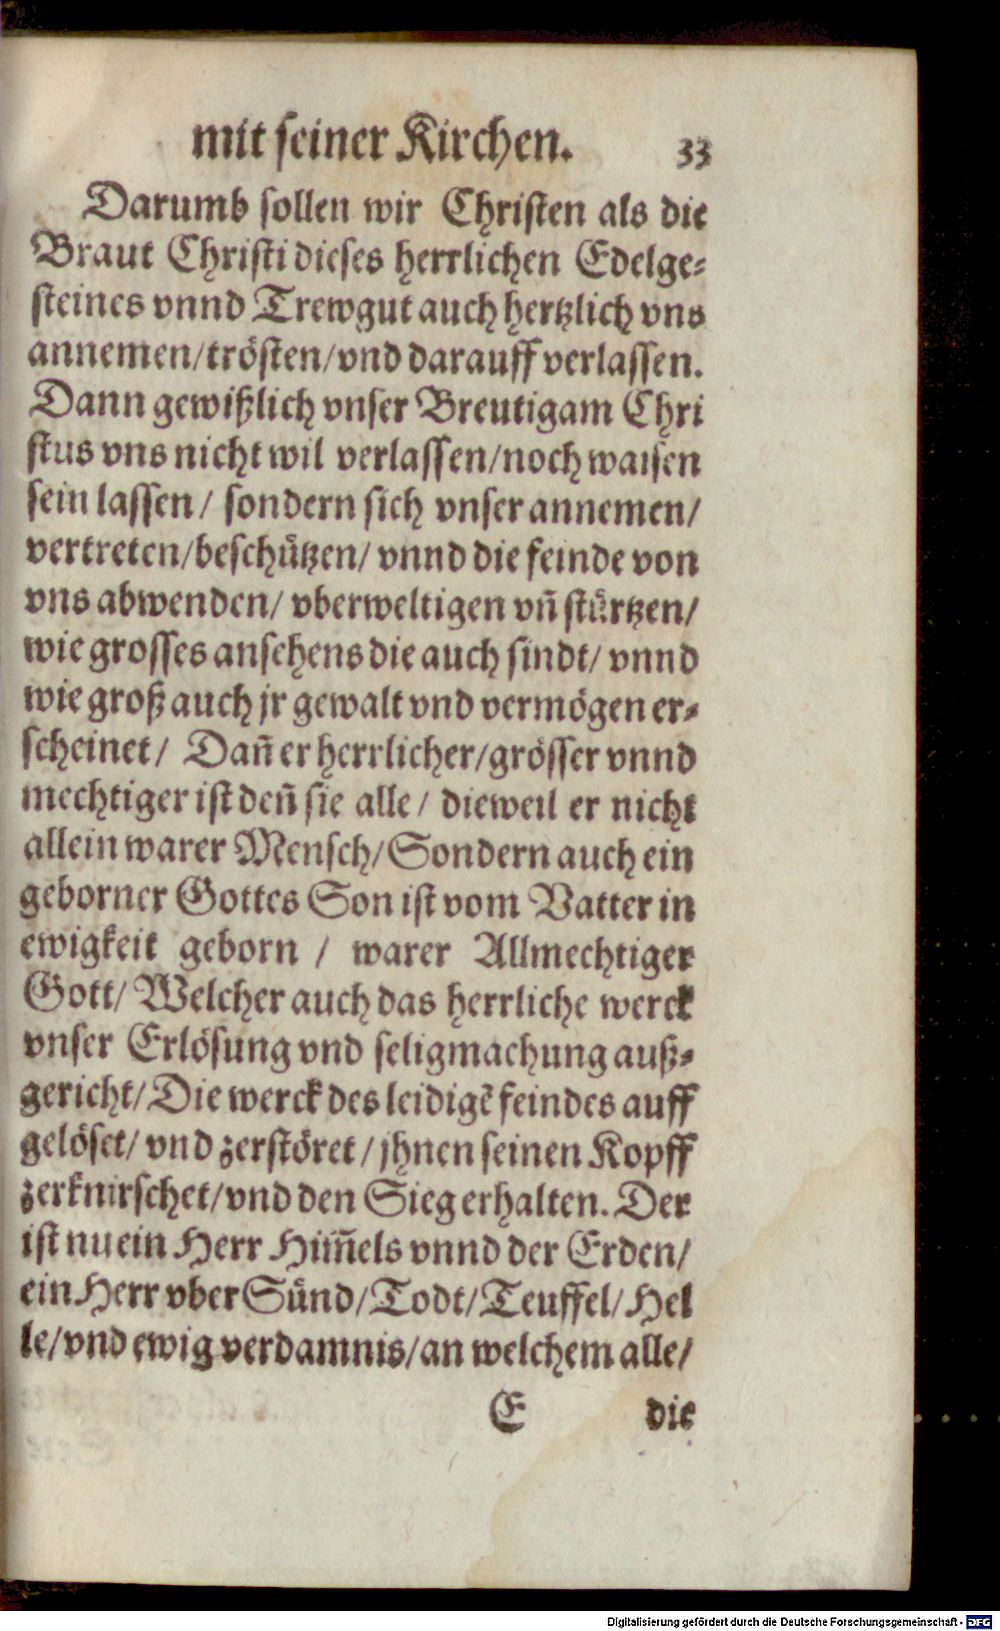 mit seiner Kirchen. 33
Darumb sollen wir Christen als die
Braut Christi dieses herrlichen Edelge-
steines vnnd Trewgut auch hertzlich vns
annemen/trösten/vnd darauff verlassen.
Dann gewißlich vnser Breutigam Chri
stus vns nicht wil verlassen/noch waisen
sein lassen/ sondern sich vnser annemen/
vertreten/beschützen/ vnnd die feinde von
vns abwenden/ vberweltigen vñ stürtzen/
wie grosses ansehens die auch sindt/ vnnd
wie groß auch jr gewalt vnd vermögen er-
scheinet/ Dañ er herrlicher/grösser vnnd
mechtiger ist deñ sie alle/ dieweil er nicht
allein warer Mensch/Sondern auch ein
geborner Gottes Son ist vom Vatter in
ewigkeit geborn / warer Allmechtiger
Gott/ Welcher auch das herrliche werck
vnser Erlösung vnd seligmachung auß-
gericht/Die werck des leidigẽ feindes auff
gelöset/ vnd zerstöret/ jhnen seinen Kopff
zerknirschet/vnd den Sieg erhalten. Der
ist nu ein Herr Him̃els vnnd der Erden/
ein Herr vber Sünd/Todt/Teuffel/Hel
le/vnd ewig verdamnis/an welchem alle/
E die
Digitalisierung gefördert durch die Deutsche Forschungsgemeinschaft - DFG